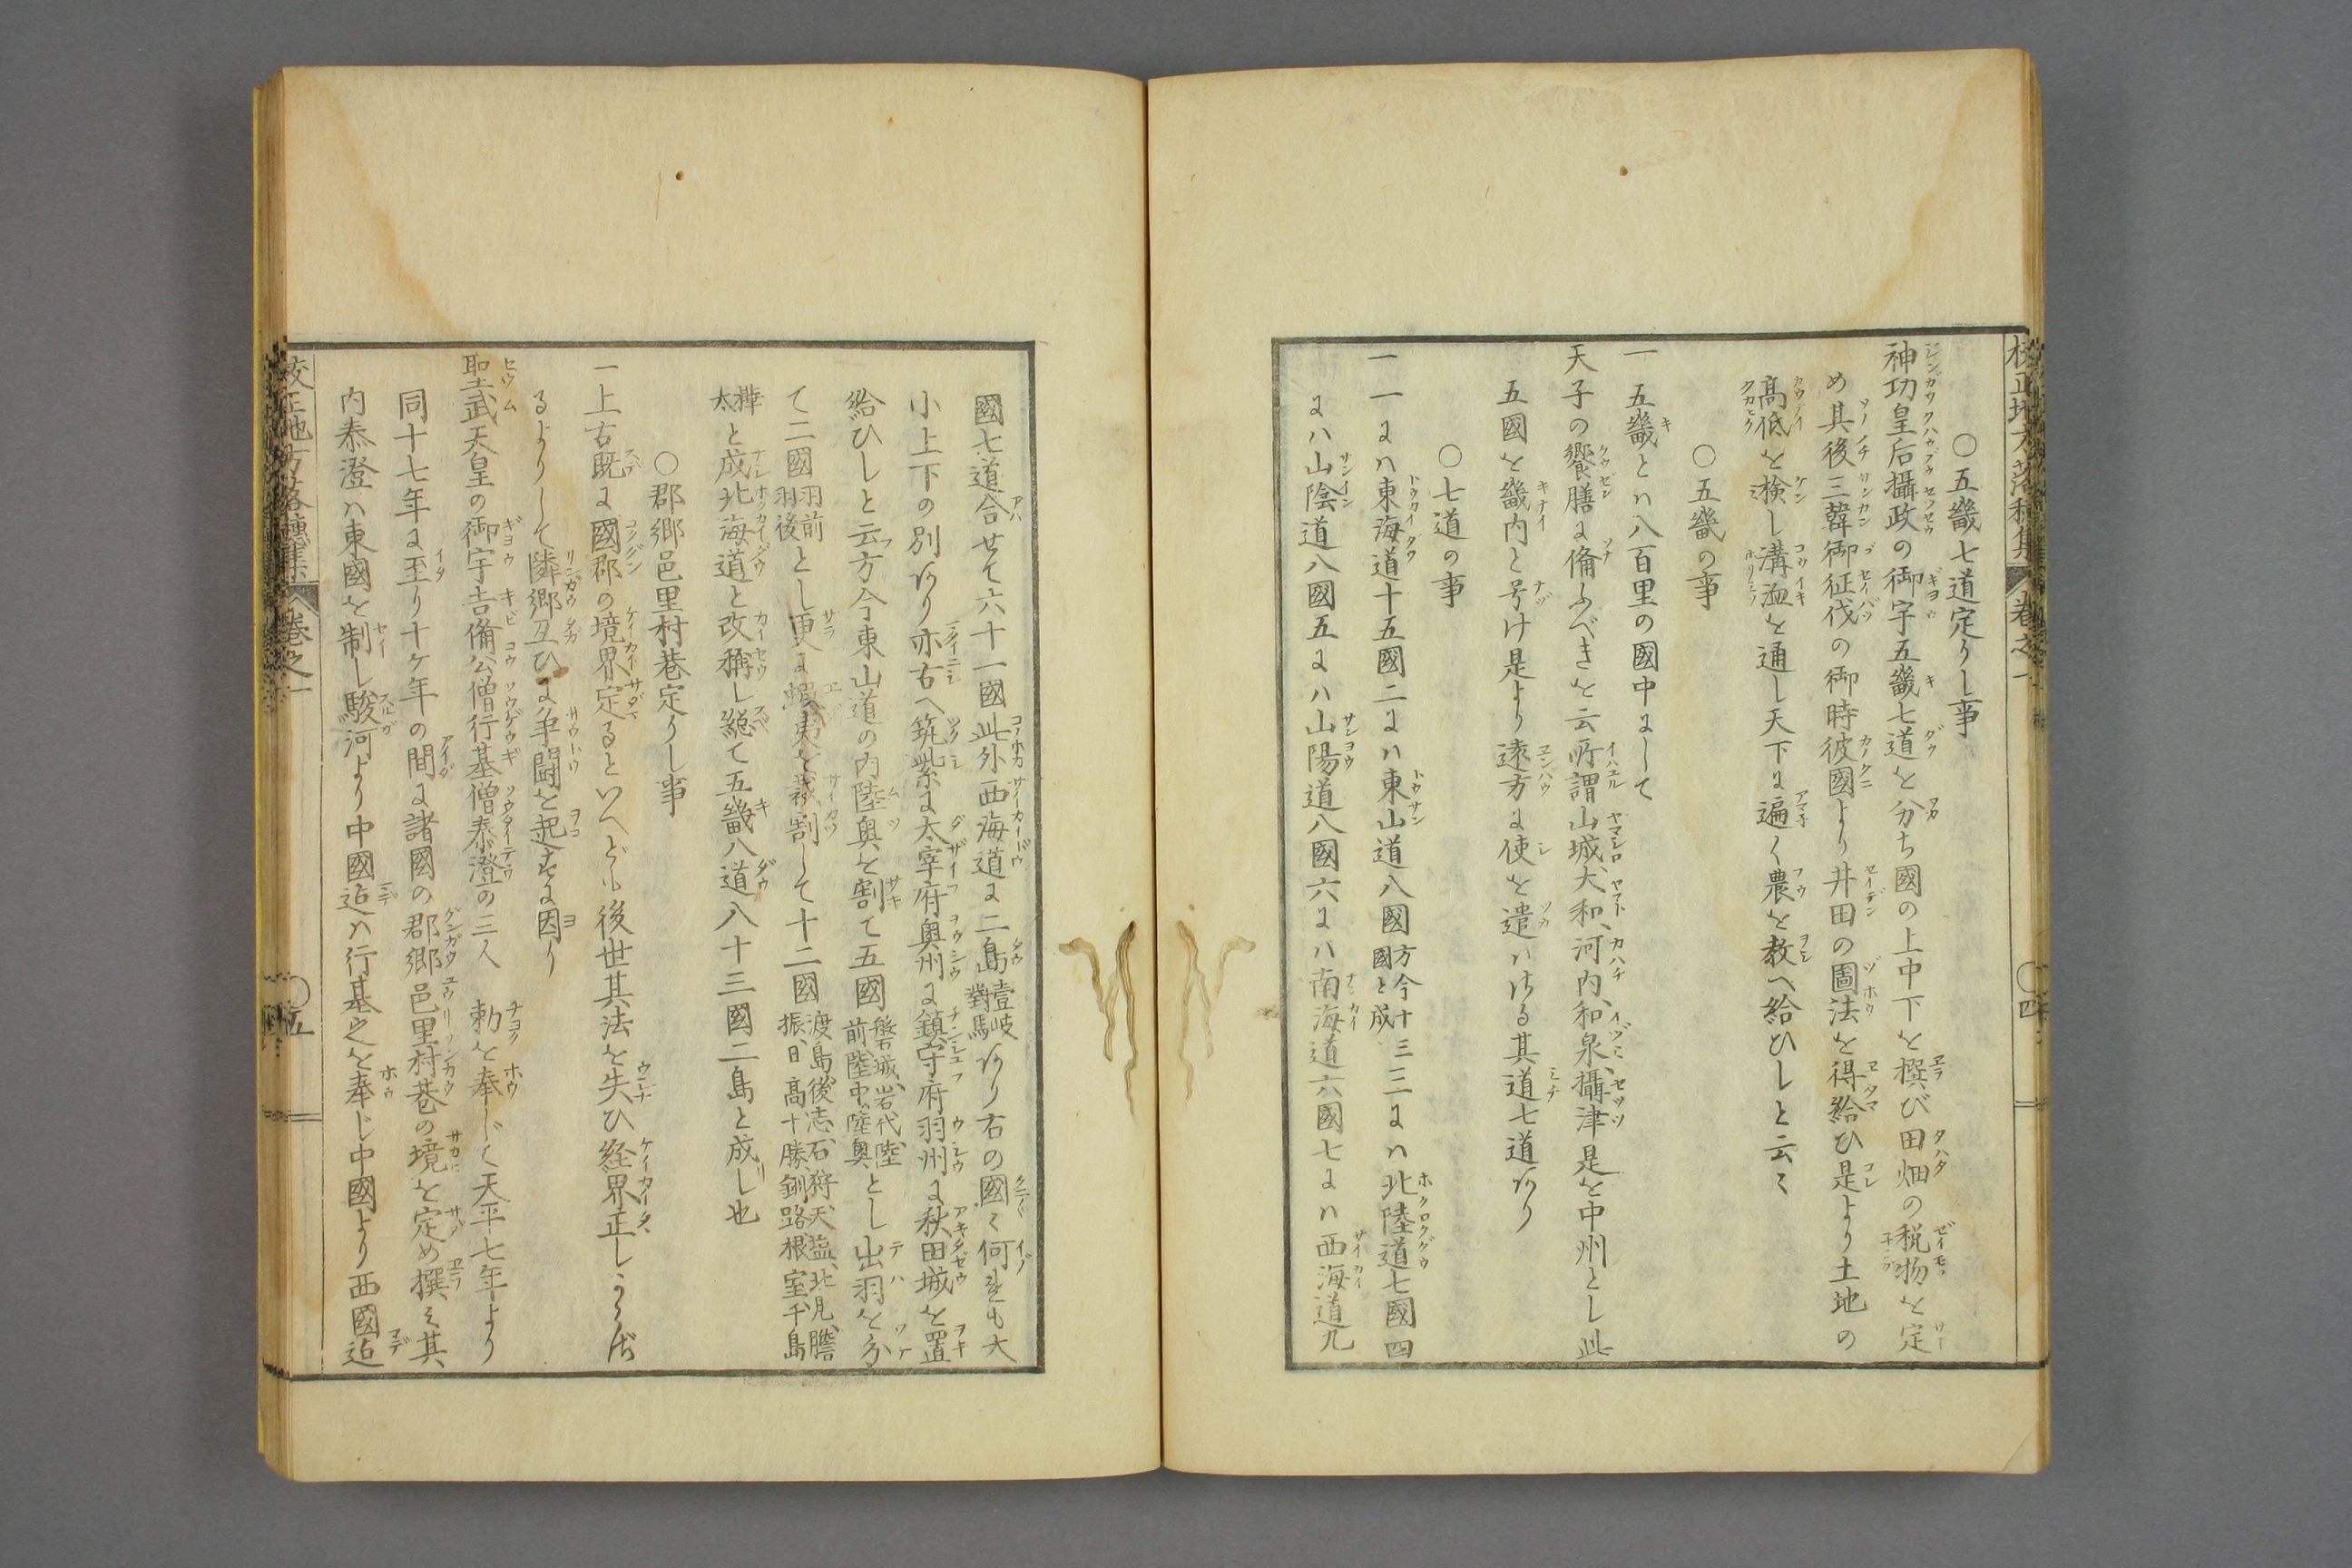 ○五畿七道定りし事
神功皇后攝政の御宇五畿七道を分ち國の上中下を撰び田畑の税物を定
め其後三韓御征伐の御時彼國より井田の圖法を得給ひ是より土地の
高低を検し溝洫を通し天下に遍く農を教へ給ひしと云々
○五畿の事
一 五畿とハ八百里の國中にして
天子の饗膳に備ふべきを云所謂山城、大和、河内、和泉、攝津是を中州とし此
五國を畿内と号け是より遠方に使を遣ハせる其道七道あり
○七道の事
一 一にハ東海道十五國二にハ東山道八國方今十三國と成三にハ北陸道七國四
にハ山陰道八國五にハ山陽道八國六にハ南海道六國七にハ西海道九
校正地方落穂集 卷之一 ○四
國七道合せて六十一國此外西海道に二島壹岐對馬あり右の國々何れも大
小上下の別あり亦古へ筑紫に太宰府奥州に鎮守府羽州に秋田城を置
給ひしと云方今東山道の内陸奥を割て五國磐城、岩代、陸前、陸中、陸奥とし出羽を分
て二國羽前羽後とし更に蝦夷を裁割して十二國渡島、後志、石狩、天塩、北見、膽振、日高、十勝、釧路、根室、千島
樺太と成北海道と改稱し総て五畿八道八十三國二島と成し也
○郡郷邑里村巷定りし事
一上古既に國郡の境界定るといへども後世其法を失ひ経界正しからざ
るよりして隣郷互ひに争闘を起すに因り
聖武天皇の御宇吉備公僧行基僧泰澄の三人 勅を奉じて天平七年より
同十七年に至り十ケ年の間に諸國の郡郷邑里村巷の境を定め撰ミ其
内泰澄ハ東國を制し駿河より中國迠ハ行基之を奉じ中國より西國迠
校正地方落穂集 卷之一 ○五